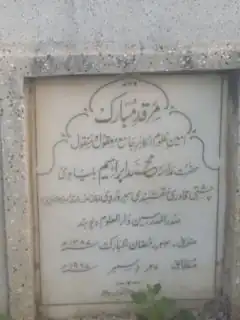 مرقد مبارک
امین علوم اکابر جامع معقول و منقول
حضرت علامہ محمد ابراہیم بلیاوی
چشتی قادری نقشبندی سہروردی
صدر المدرسین دارالعلوم دیوبند
رمضان المبارک ۱۳۸۷ھ
مطابق ۲۷ دسمبر ۱۹۶۷ء